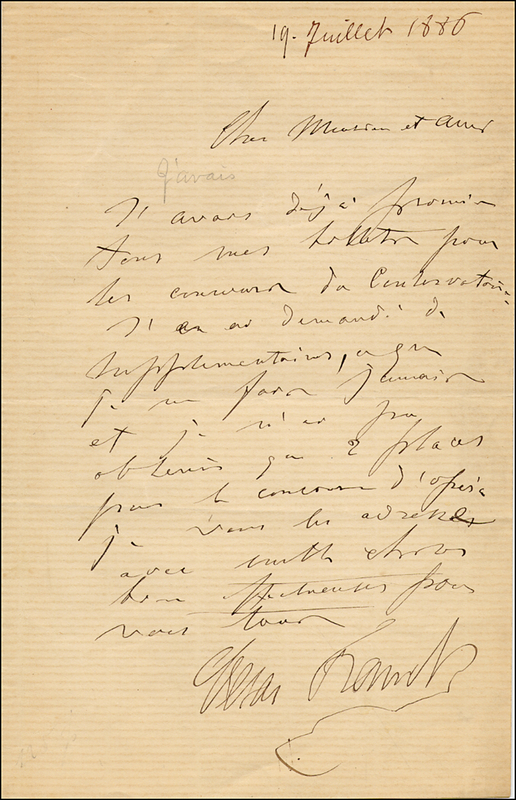 19. Juillet 1886
Cher Monsieur et ami
J'avais
J'avais déjà promis
tous mes billets pour
les concours du Conservatoire,
J'en ai demandé de
supplémentaires, ce que
je ne fais jamais
et je n'ai pu
obtenir que 2 places
pour le concours d'opéra
je vous les adresse
avec mille choses
bien affectueuses pour
vous tous
César Franck